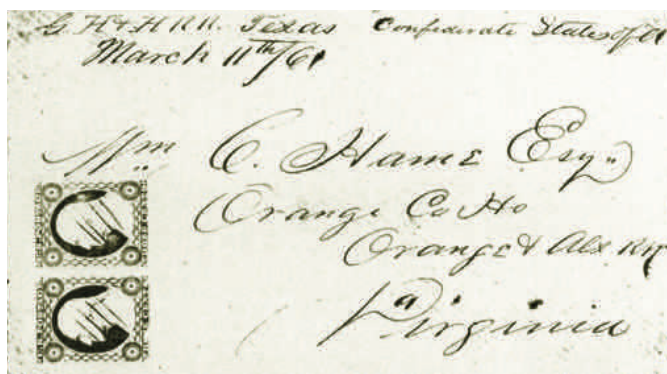 G. H & H RR. Texas Confederate States of A
March 11th/61
Wm C. Hame Esq"
Orange Co Ho
Orange & Alex RR
Virginia